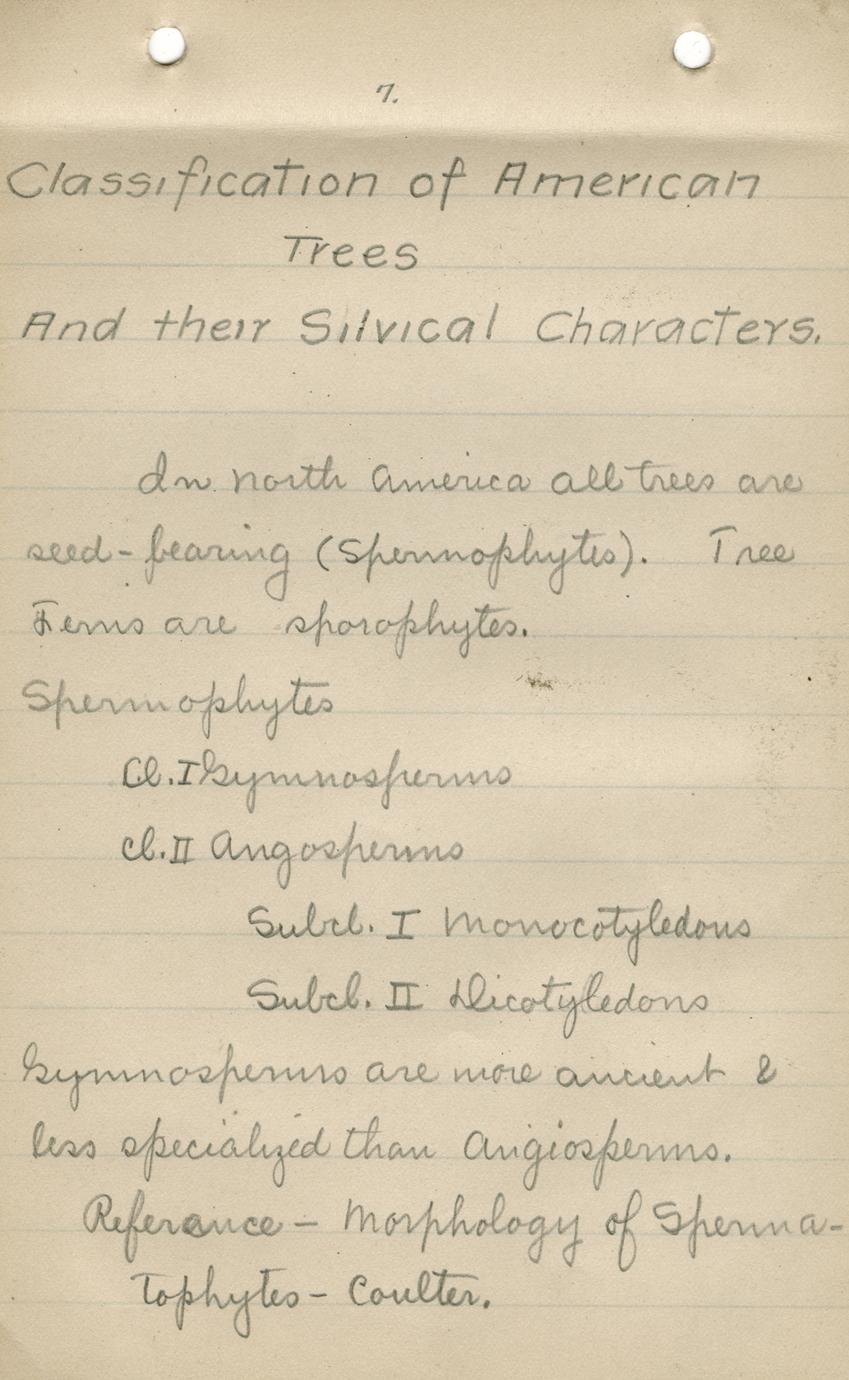 7.
Classification of American
Trees
And their Silvical Characters.
In North America all trees are
seed-bearing (Spermophytes). Tree
Ferns are sporophytes.
Spermophytes
Cl. I Gymnosperms
Cl. II Angosperms
Subcl. I Monocotyledons
Subcl. II Dicotyledons
Gymnosperms are more ancient &
less specialized than Angiosperms.
Referance - Morphology of Sperma-
tophytes - Coulter.